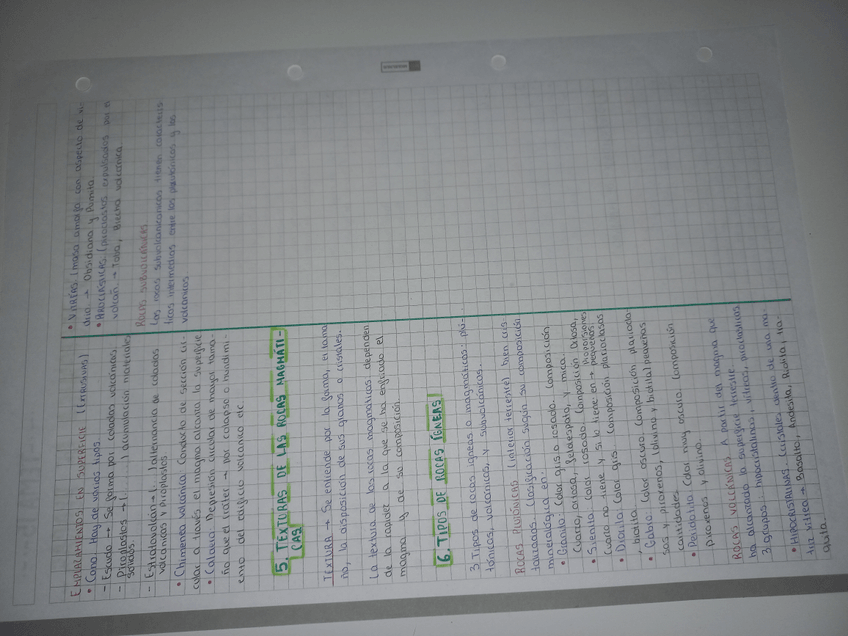 EMPLAZAMIENTOS EN SUPERFICIE (Extrusivos)
• Cono. Hay de varios tipos.
- Escudo → Se forma por coladas volcánicas.
- Piroplastos → ( ) acumulación materiales
sólidos.
- Estratovolcán → ( ) alternancia de coladas
volcánicas y Piroplastos
• Chimenea volcánica. Conducto de sección cir-
cular a través el magma alcanza la superficie
• Caldera. Depresión circular de mayor tama-
ño que el cráter → por colapso o hundimi-
ento del edificio volcánico de
5. TEXTURAS DE LAS ROCAS MAGMÁTI-
CAS
TEXTURA → Se entiende por la forma, el tama-
ño, la disposición de sus granos o cristales.
La textura de las rocas magmáticas dependen
de la rapidez a la que se ha enfriado el
magma y de su composición.
6. TIPOS DE ROCAS ÍGNEAS
3 Tipos de rocas ígneas o magmáticas: plu-
tónicas, volcánicas, y subvolcánicas.
ROCAS PLUTÓNICAS (interior terrestre) bien cris
talizadas. Clasificación según su composición
mineralógica en:
• Granito: Color gris o rosado. Composición
Cuarzo, ortosa, feldespato, y mica.
• Sienita: Color rosado. Composición Ortosa,
Cuarzo no tiene y si lo tiene en → proporciones pequeñas
• Diorita: Color gris. Composición plagioclasas
, biotita
• Gabro: Color oscuro. Composición plagiocla-
sas y piroxenos, (olivino y biotita) pequeñas
cantidades
• Peridotita: Color muy oscuro. Composición
piroxenos y olivino.
ROCAS VOLCÁNICAS A partir del magma que
ha alcanzado la superficie terrestre.
3 grupos: hipocristalinas, vítreas, piroclásticas
• HIPOCRISTALINAS: Cristales dentro de una ma-
triz vítrea → Basalto, Andesita, Riolita, Tra-
quita.
• VÍTREAS: (masa amorfa con aspecto de vi-
drio → Obsidiana y Pumita.
• PIROCLÁSTICAS: (piroclastos expulsados por el
volcán → Toba, Brecha volcánica.
ROCAS SUBVOLCÁNICAS
Las rocas subvolcánicas tienen caracterís
ticas intermedias entre las plutónicas y las
volcánicas